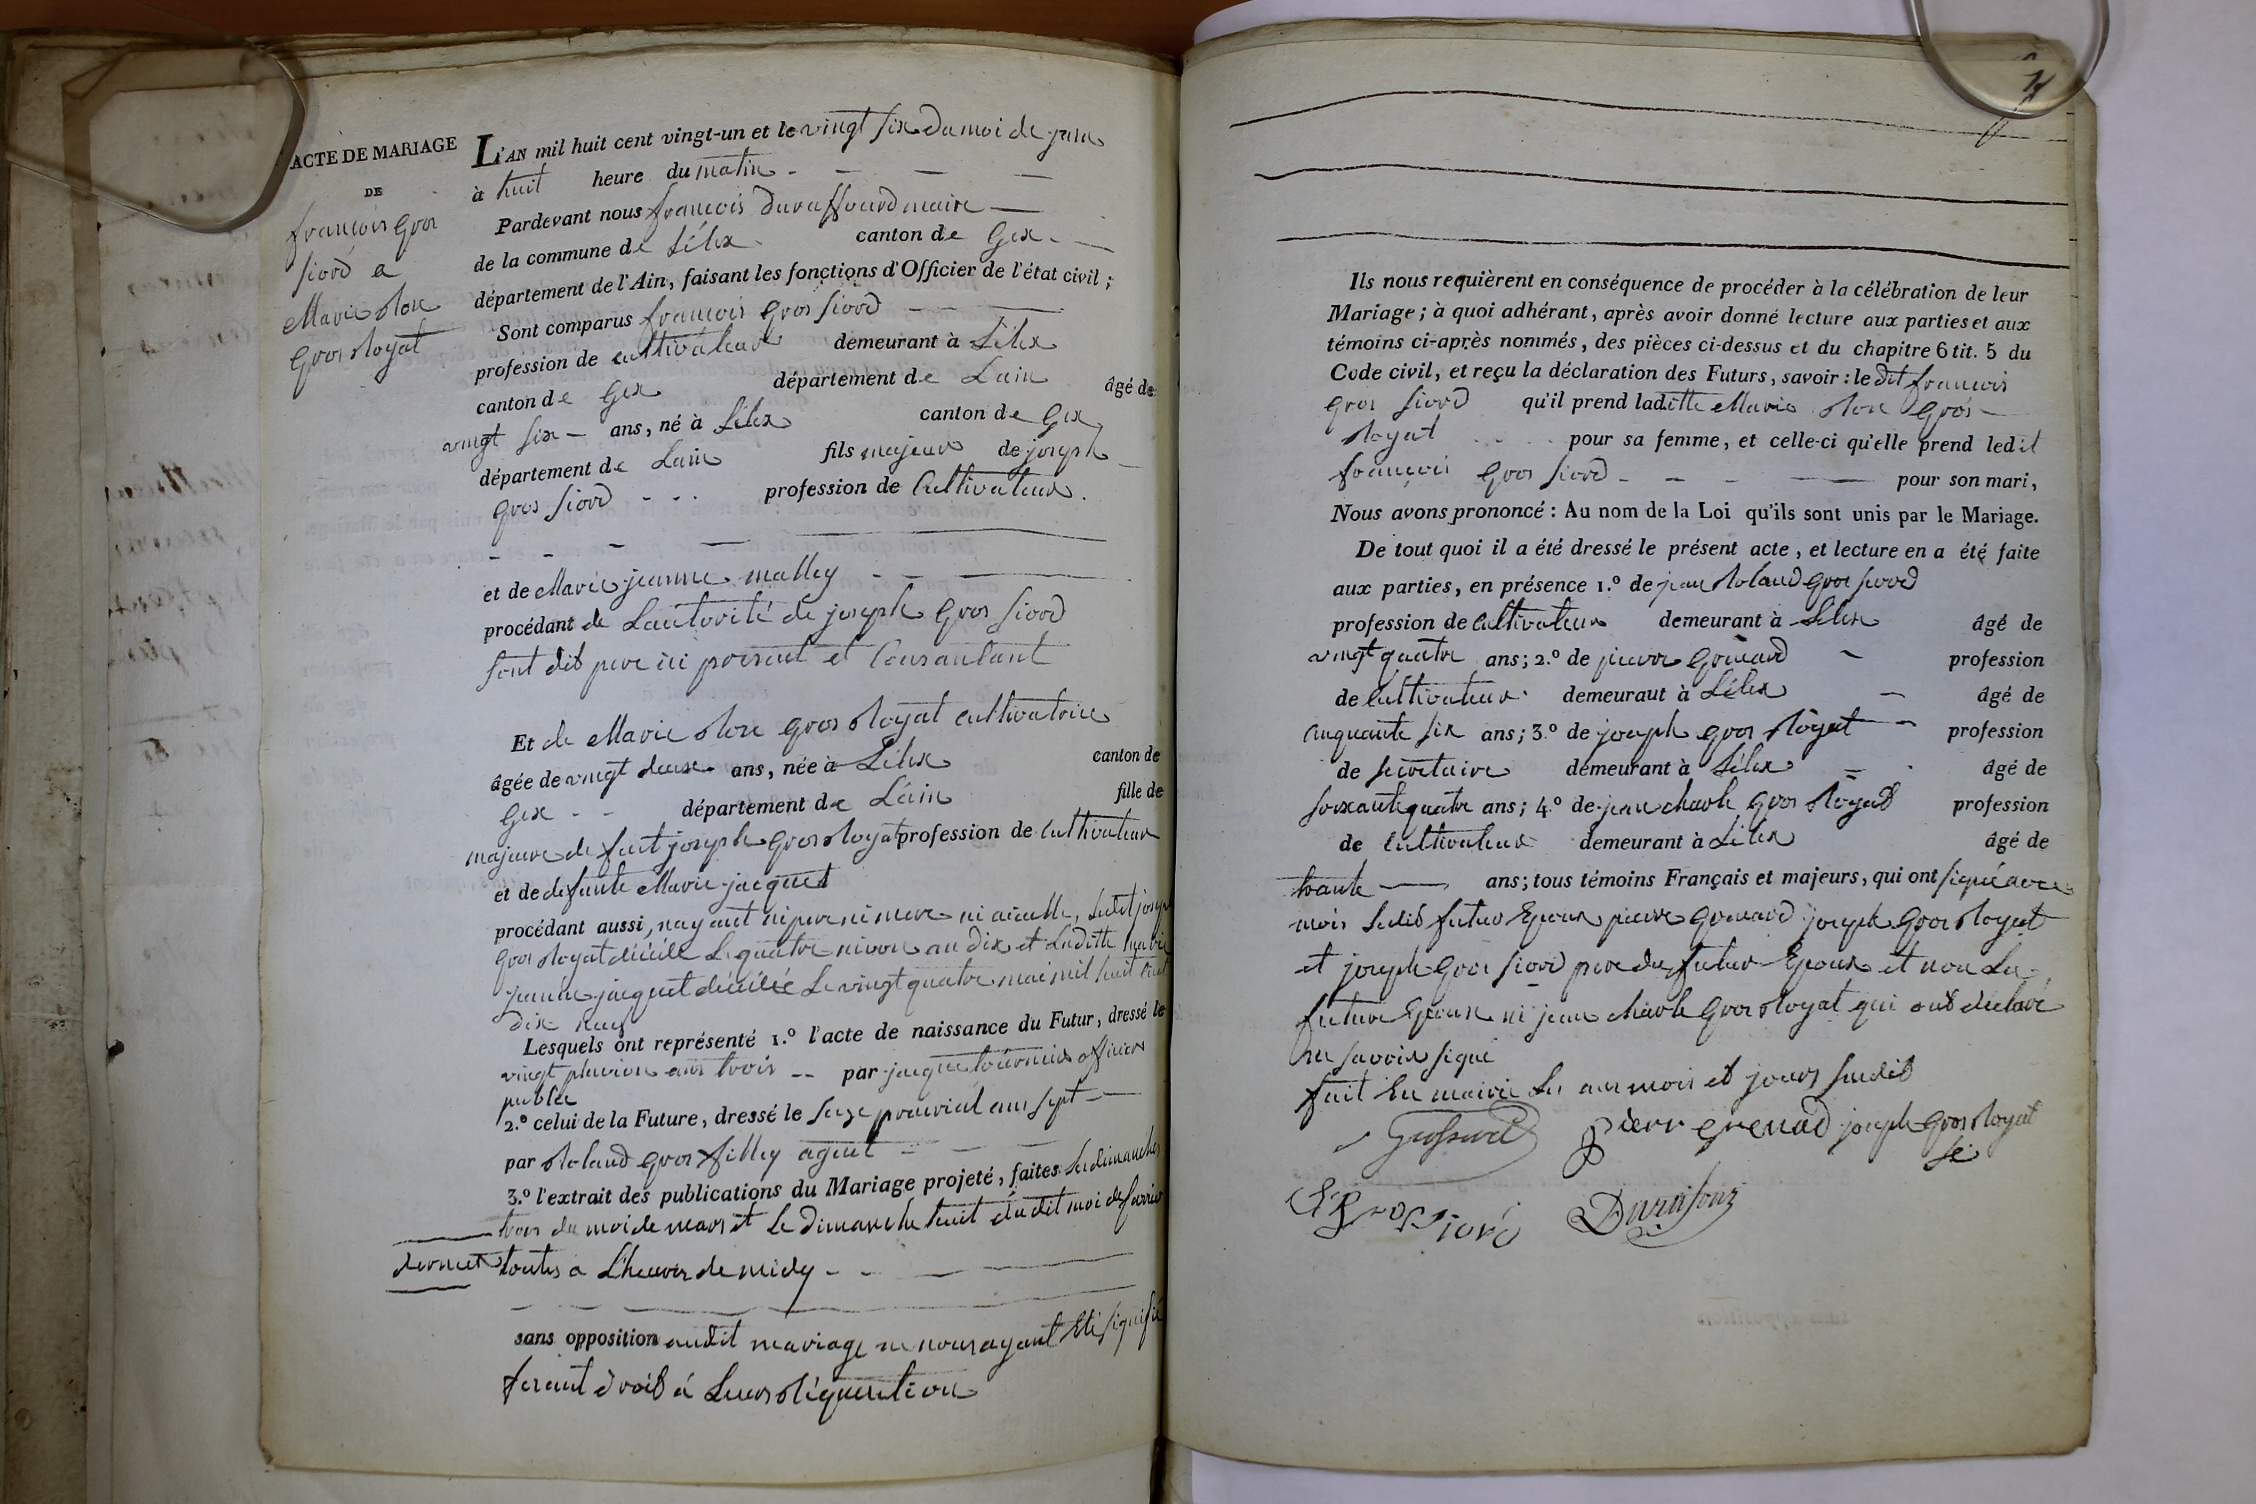 ACTE DE MARIAGE
DE
françois Gros
Siord a
Marie Rose
Gros Royat
L'AN mil huit cent vingt-un et le vingt six du moi de juin
à huit heure du matin
Pardevant nous françois Duraffourd maire
de la commune de Lélex canton de Gex
département de l'Ain, faisant les fonctions d'Officier de l'état civil ;
Sont comparus françois Gros Siord
profession de cultivateur demeurant à Lélex
canton de Gex département de Lain âgé de
vingt six ans, né à Lélex canton de Gex
département de Lain fils majeur de joseph
Gros Siord profession de Cultivateur.
et de Marie jeanne malley
procédant de Lautorité de joseph Gros Siord
sont dit pere ici present et Consantant
Et de Marie Rose Gros Royat cultivatrice
âgée de vingt deux ans, née à Lélex canton de
Gex département de Lain fille de
majeure de fuit joseph Gros Royat profession de Cultivateur
et de defunte Marie jacquet
procédant aussi, nayant ni pere ni mere ni aieulle, Ledit joseph
Gros Royat décédé Le quatre nivose an dix et Laditte marie
jeanne jacquet décédée Le vingt quatre mai mil huit Cent
dix neuf
Lesquels ont représenté 1.º l'acte de naissance du Futur, dressé le
vingt pluviose ans trois par jacque tournier officier
public
2.º celui de la Future, dressé le seize prairial ans sept
par Roland Gros filley agent
3.º l'extrait des publications du Mariage projeté, faites Les dimanches
trois du moi de mars et Le dimanche huit dudit moi de
dernier toutes a L'heure de midy
sans opposition audit mariage ne nous ayant Eté signifié
fesant droit à Leur réquisition
Ils nous requièrent en conséquence de procéder à la célébration de leur
Mariage ; à quoi adhérant, après avoir donné lecture aux parties et aux
témoins ci-après nommés, des pièces ci-dessus et du chapitre 6 tit. 5 du
Code civil, et reçu la déclaration des Futurs, savoir : le dit françois
Gros Siord qu'il prend laditte Marie Rose Gros
Royat pour sa femme, et celle-ci qu'elle prend ledit
françois Gros Siord pour son mari,
Nous avons prononcé : Au nom de la Loi qu'ils sont unis par le Mariage.
De tout quoi il a été dressé le présent acte, et lecture en a été faite
aux parties, en présence 1.º de jean Roland Gros Siord
profession de Cultivateur demeurant à Lélex âgé de
vingt quatre ans ; 2.º de pierre Grenard profession
de Cultivateur demeuraut à Lélex âgé de
Cinquante six ans ; 3.º de joseph Gros Royat profession
de secretaire demeurant à Lélex âgé de
soixante quatre ans ; 4.º de jean charle Gros Royat profession
de Cultivateur demeurant à Lélex âgé de
trante ans ; tous témoins Français et majeurs, qui ont signé avec
nois Ledit futur Epoux pierre Grenard joseph Gros Royat
et joseph Gros Siord pere du futur Epoux et non La
future Epouse ni jean charle Gros Royat qui ont déclaré
ne savoir signé
fait En mairie Les ans mois et jours susdit
pierr grenad joseph Gros Royat
se